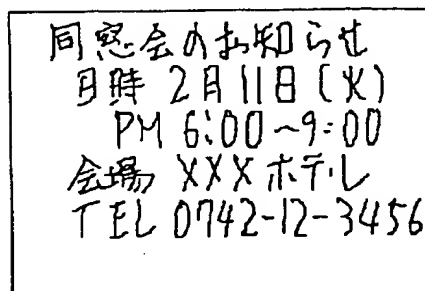 同窓会のお知らせ
日時 2月11日(火)
PM 6:00~9:00
会場 XXXホテル
TEL 0742-12-3456